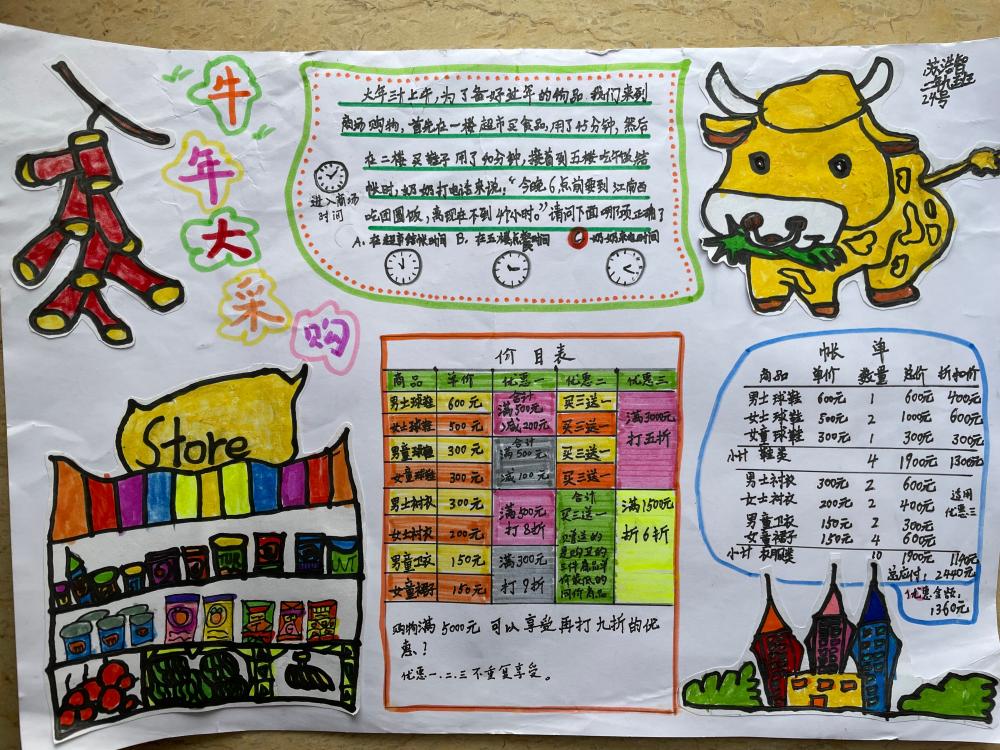 牛
年
大
采
购
大年三十上午,为了备好过年的物品 我们来到
商场购物,首先在一楼超市买食品,用了45分钟,然后
在二楼买鞋子用了40分钟,接着到五楼吃午饭结
帐时,奶奶打电话来说,“今晚6点前要到江南西
吃团圆饭,离现在不到4个小时。”请问下面哪项正确?
进入商场
时间
A、在超市结帐时间 B、在五楼
奶奶来电时间
24号
Store
价目表
商品 单价 优惠一 优惠二 优惠三
男士球鞋 600元 合计满500元减200元 买三送一 满3000元打五折
女士球鞋 500元 买三送一
男童球鞋 300元 合计满500元减100元 买三送一
女童球鞋 300元 买三送一
男士衬衣 300元 满500元打8折 合计买三送一 满1500元折6折
女士衬衣 200元
男童卫衣 150元 满300元打9折
女童裙子 150元
购物满5000元可以享受再打九折的优
惠.!
优惠一.二.三不重复享受。
帐单
商品 单价 数量 总价 折扣价
男士球鞋 600元 1 600元 400元
女士球鞋 500元 2 1000元 600元
女童球鞋 300元 1 300元 300元
小计 鞋类 4 1900元 1300元
男士衬衣 300元 2 600元
女士衬衣 200元 2 400元 适用优惠三
男童卫衣 150元 2 300元
女童裙子 150元 4 600元
小计 衣服类 10 1900元 1140元
总应付:2440元
优惠金额:
1360元